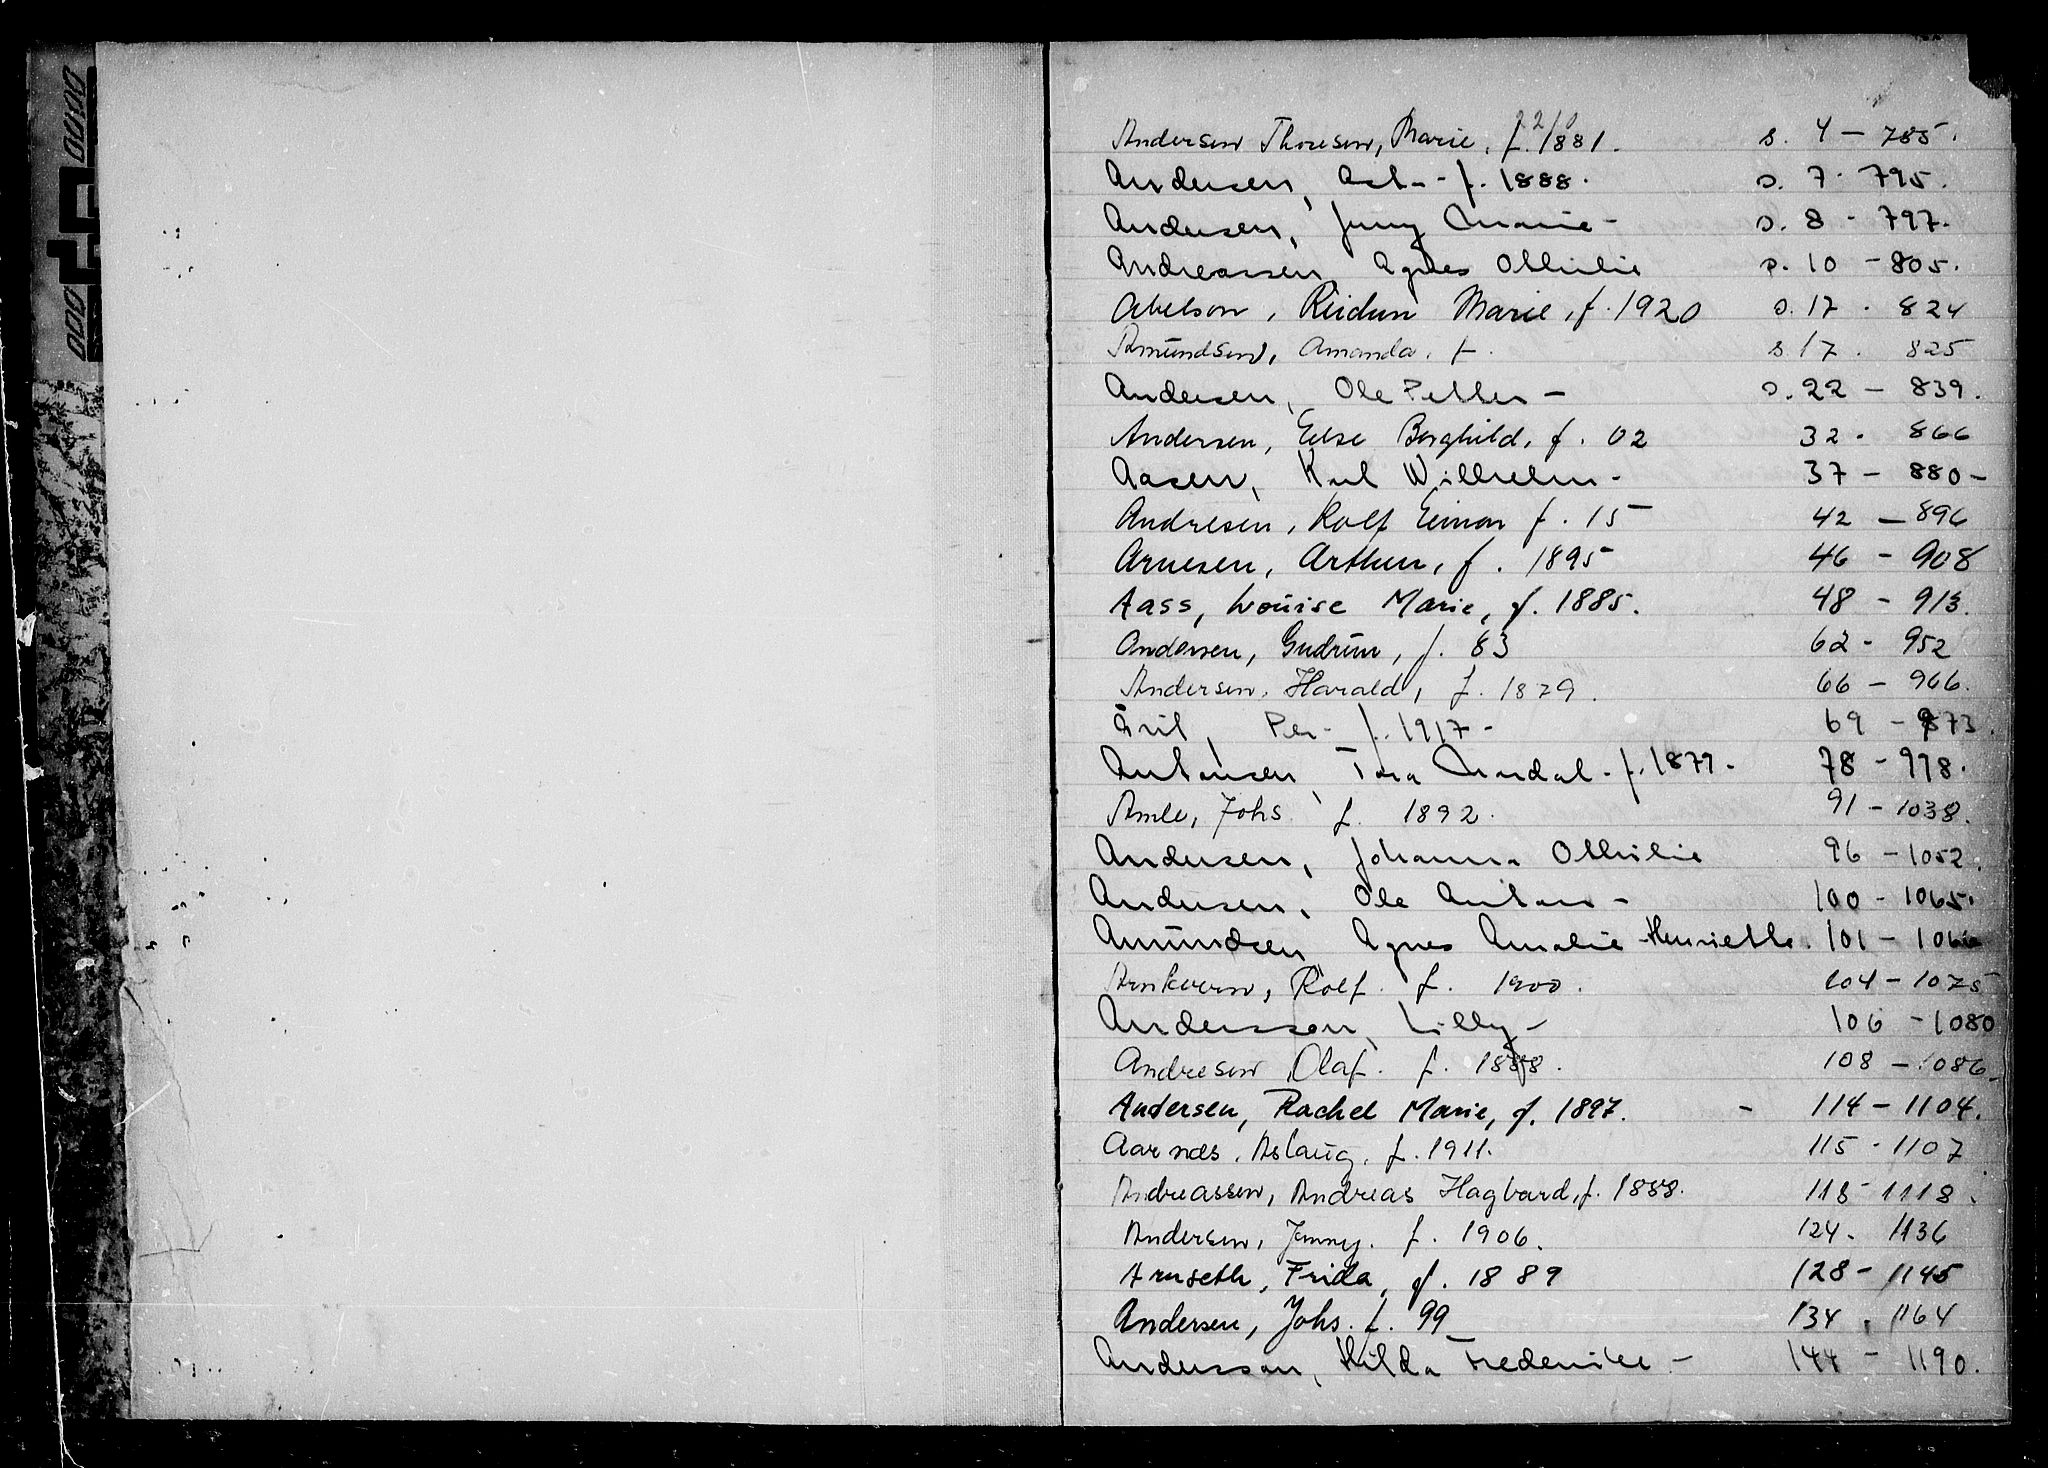 Andersen Thoresen, Marie. f. 2/10 1881. s. 4 - 785.
Andersen, - f. 1888. s. 7 - 795.
Andersen, Jenny Marie - s. 8 - 797.
Andreassen Agnes Othilie s. 10 - 805.
Abelson, Reidun Marie, f. 1920 s. 17 . 824
Amundsen, Amanda. f. s. 17 . 825
Andersen, Ole Petter - s. 22 - 839.
Andersen, Else Borghild, f. 02 32 . 866
Aasen, Karl Wilhelm - 37 - 880 -
Andresen, Rolf Einar f. 15 42 - 896
Arnesen, Arthur, f. 1895 46 - 908
Aass, Louise Marie, f. 1885. 48 - 913.
Andersen, Gudrun, f. 83 62 - 952
Andersen, Harald, f. 1879. 66 - 966.
Per - f. 1917 - 69 - 973.
Antonsen, Tora - f. 1879. 78 - 998.
Amle, Johs. f. 1892. 91 - 1038.
Andersen, Johanna Othilie 96 - 1052.
Andersen, Ole Anton - 100 - 1065.
Amundsen, Agnes Amalie Henriette. 101 - 1066
Arnkværn, Rolf. f. 1900. 104 - 1075
Andersson, Lilly - 106 - 1080
Andresen Olaf. f. 1888. 108 - 1086 -
Andersen, Rachel Marie, f. 1897. - 114 - 1104.
Aarnæs. Aslaug. f. 1911. 115 - 1107
Andreassen, Andreas Hagbard, f. 1888. 118 - 1118.
Andersen, Jenny. f. 1906. 124 . 1136
Arnseth, Frida, f. 1889 128 - 1145
Andersen, Johs. f. 99 134 . 1164
Andersson, Hilda Frederikke - 144 - 1190.